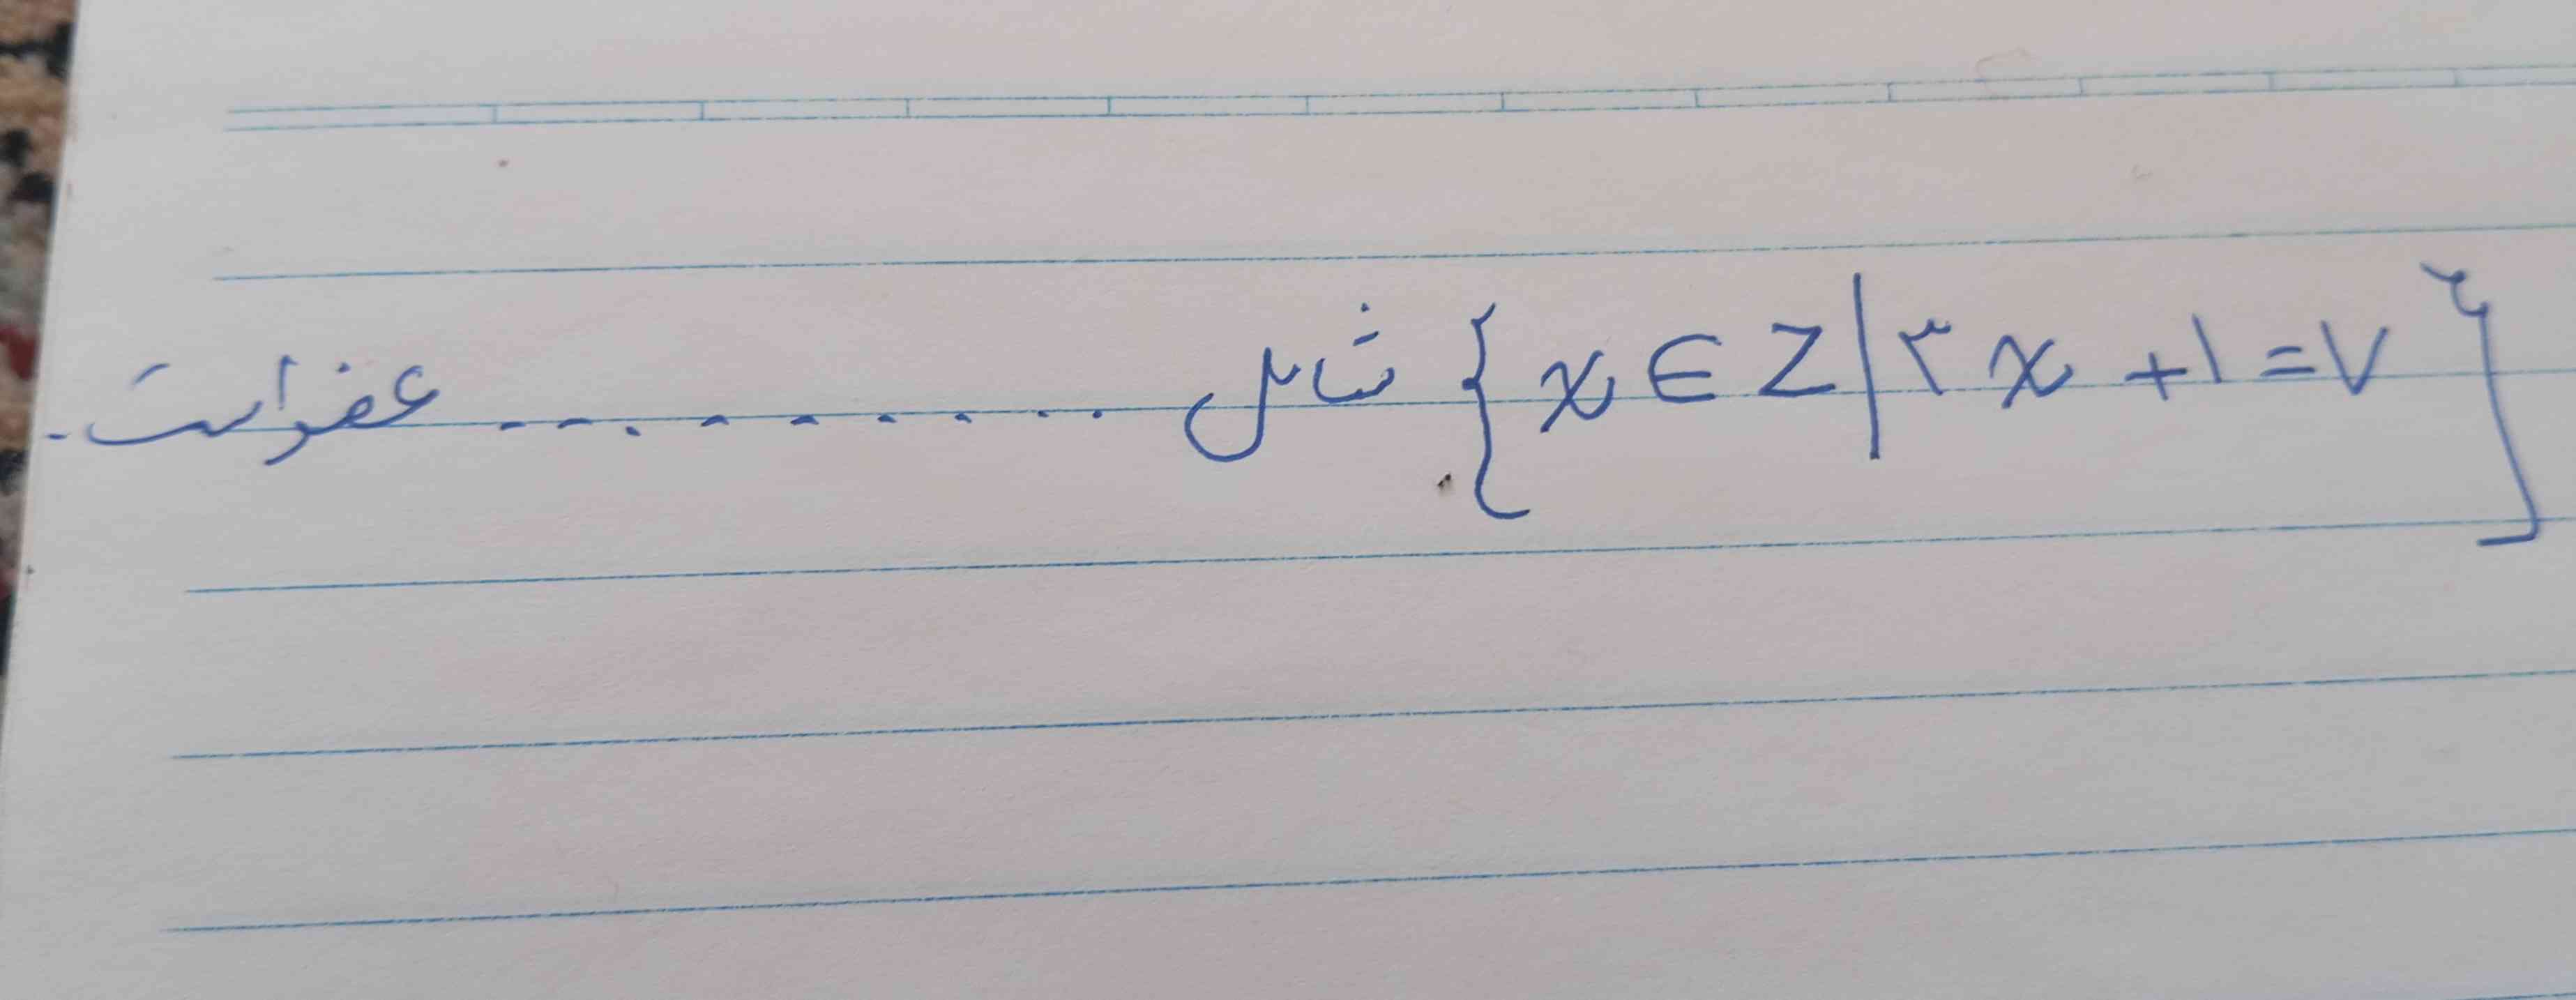 {x ∈ Z | ۳x + ۱ = ۷} شامل .......... عضو است.